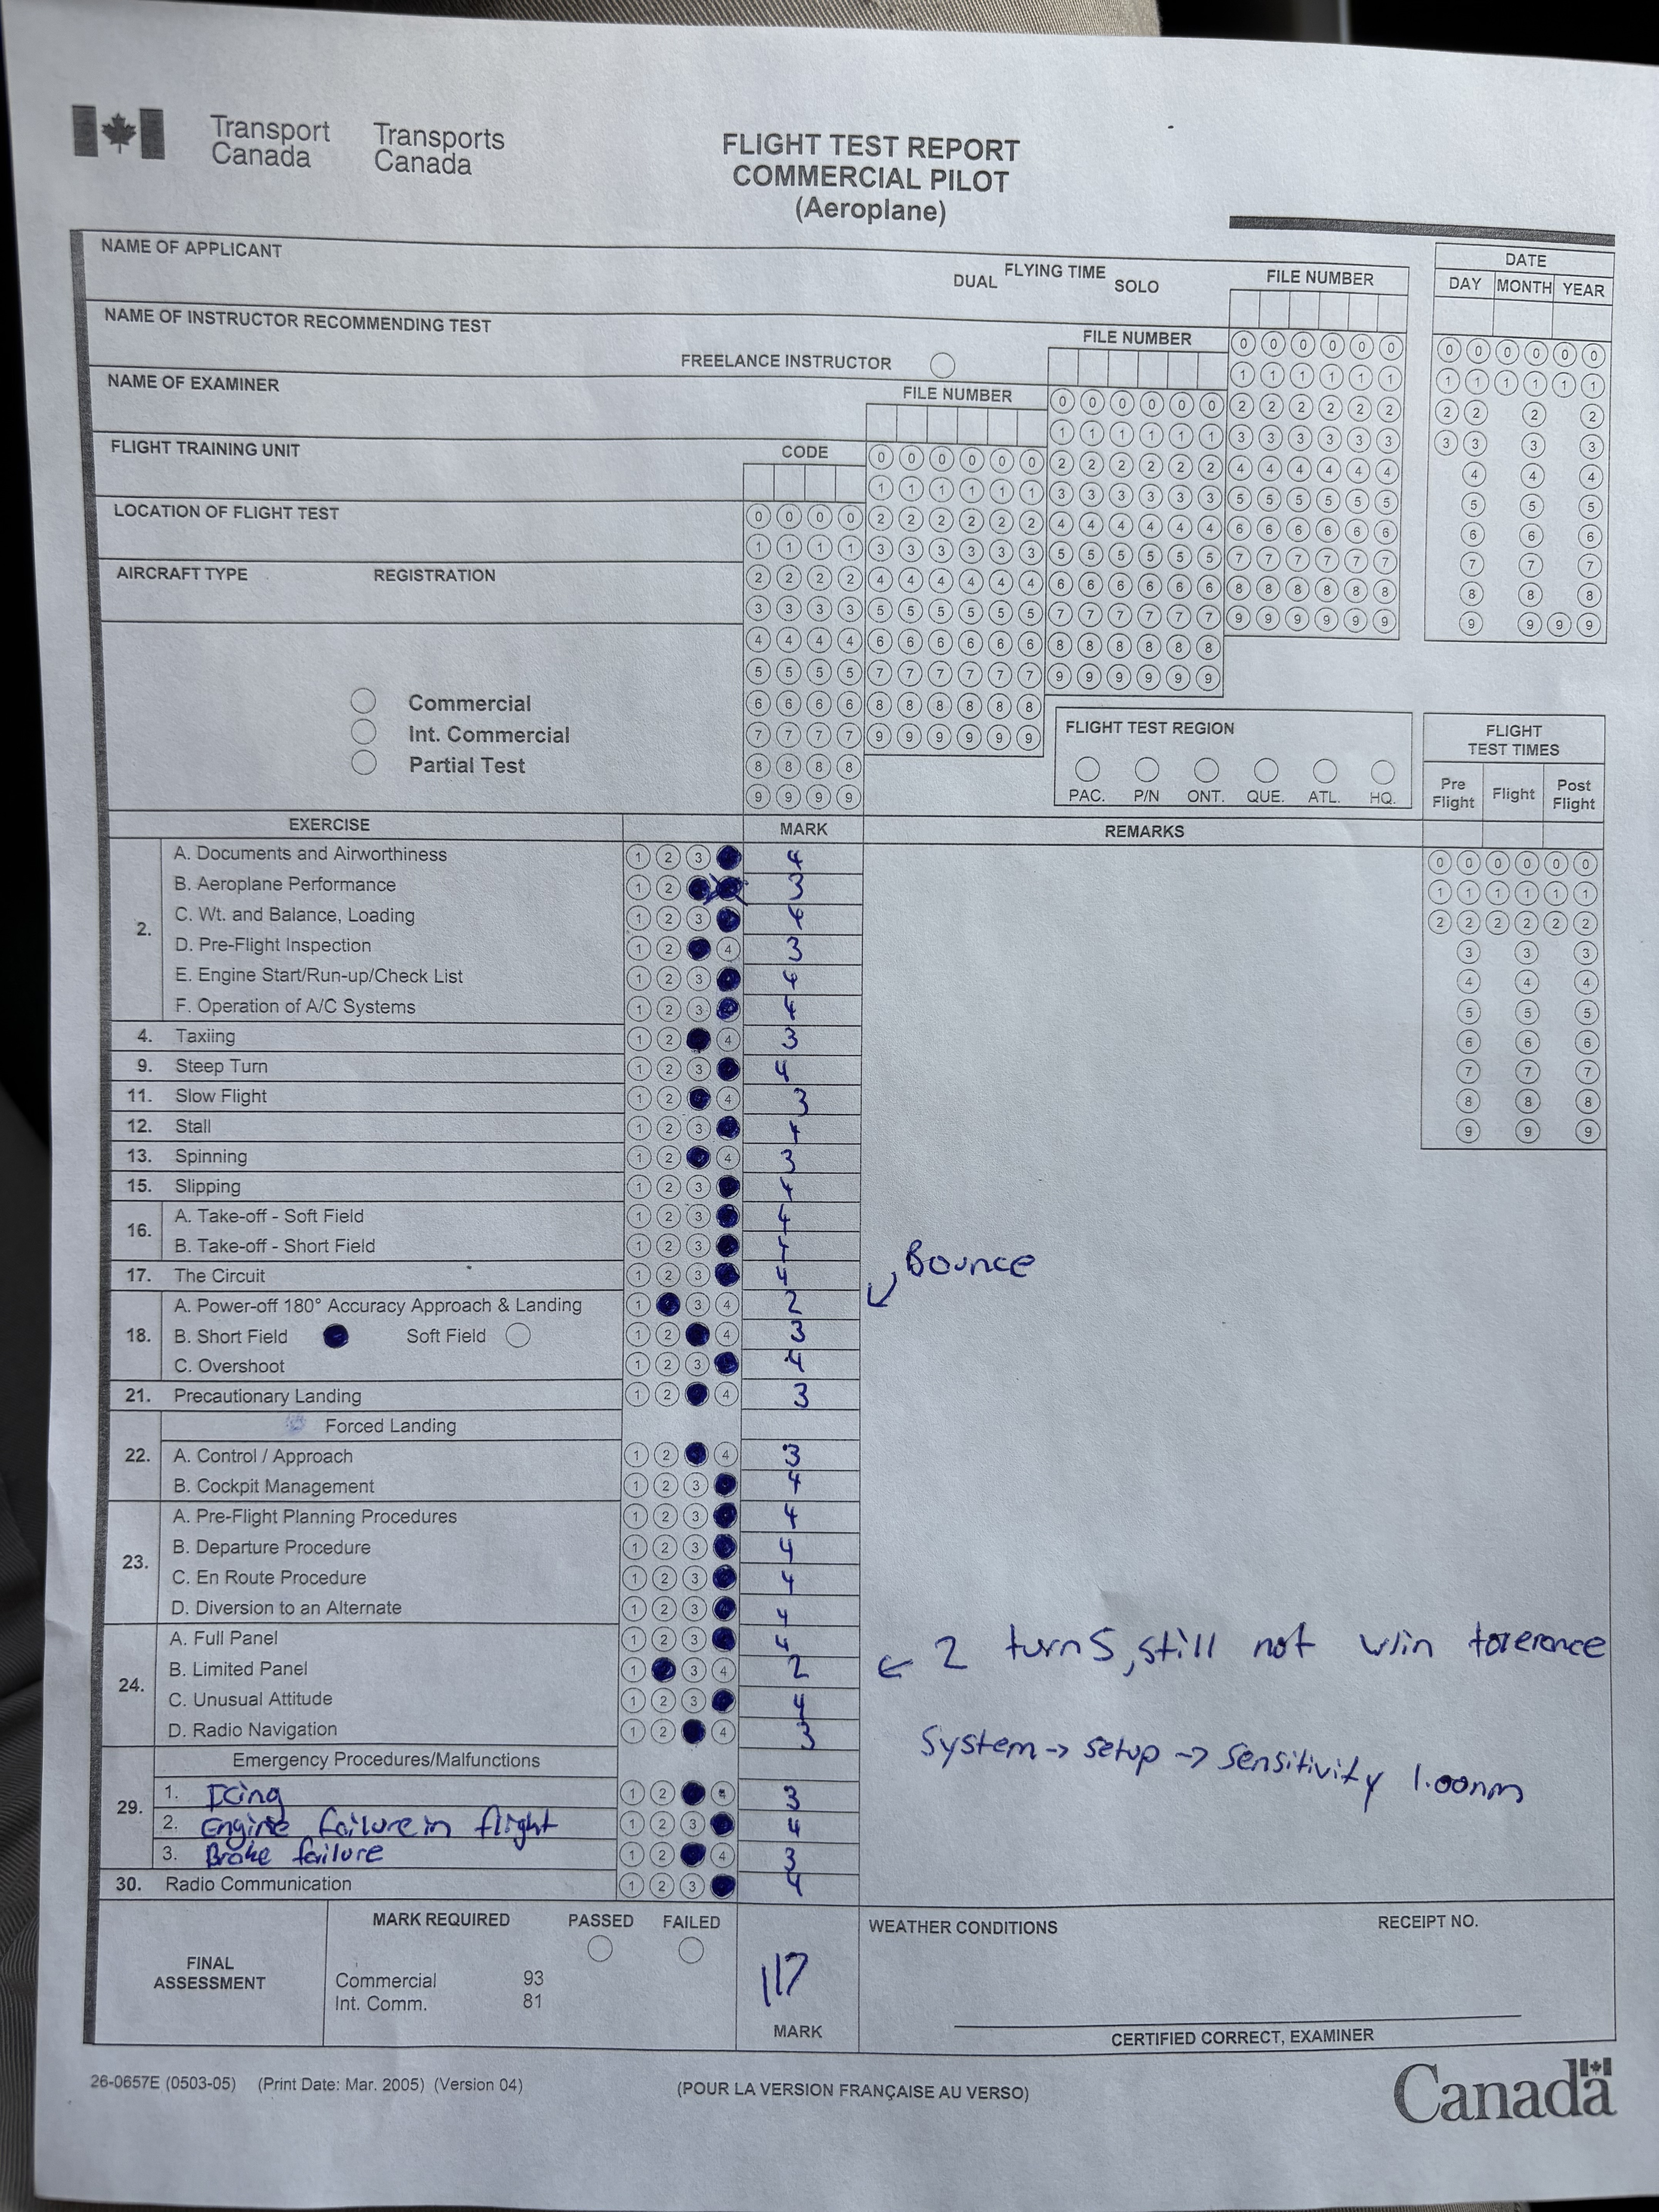 Transport Canada Transports Canada
FLIGHT TEST REPORT
COMMERCIAL PILOT
(Aeroplane)
NAME OF APPLICANT
DUAL FLYING TIME SOLO
FILE NUMBER
DATE
DAY MONTH YEAR
NAME OF INSTRUCTOR RECOMMENDING TEST
FREELANCE INSTRUCTOR
FILE NUMBER
NAME OF EXAMINER
FILE NUMBER
FLIGHT TRAINING UNIT
CODE
LOCATION OF FLIGHT TEST
AIRCRAFT TYPE REGISTRATION
Commercial
Int. Commercial
Partial Test
FLIGHT TEST REGION
PAC. P/N ONT. QUE. ATL. HQ.
FLIGHT TEST TIMES
Pre Flight Flight Post Flight
EXERCISE MARK REMARKS
2.
A. Documents and Airworthiness 1 2 3 4
B. Aeroplane Performance 1 2 3
C. Wt. and Balance, Loading 1 2 3 4
D. Pre-Flight Inspection 1 2 4 3
E. Engine Start/Run-up/Check List 1 2 3 4
F. Operation of A/C Systems 1 2 3 4
4. Taxiing 1 2 4 3
9. Steep Turn 1 2 3 4
11. Slow Flight 1 2 4 3
12. Stall 1 2 3 4
13. Spinning 1 2 4 3
15. Slipping 1 2 3 4
16.
A. Take-off - Soft Field 1 2 3 4
B. Take-off - Short Field 1 2 3 4
17. The Circuit 1 2 3 4
Bounce
18.
A. Power-off 180° Accuracy Approach & Landing 1 3 4 2
B. Short Field Soft Field 1 2 4 3
C. Overshoot 1 2 3 4
21. Precautionary Landing 1 2 4 3
22.
Forced Landing
A. Control / Approach 1 2 4 3
B. Cockpit Management 1 2 3 4
23.
A. Pre-Flight Planning Procedures 1 2 3 4
B. Departure Procedure 1 2 3 4
C. En Route Procedure 1 2 3 4
D. Diversion to an Alternate 1 2 3 4
24.
A. Full Panel 1 2 3 4
B. Limited Panel 1 3 4 2 ← 2 turns, still not w/in tolerance
C. Unusual Attitude 1 2 3 4
D. Radio Navigation 1 2 4 3
System → setup → sensitivity 1.00nm
29.
Emergency Procedures/Malfunctions
1. Icing 1 2 4 3
2. Engine failure in flight 1 2 3 4
3. Brake failure 1 2 4 3
30. Radio Communication 1 2 3 4
FINAL ASSESSMENT
MARK REQUIRED PASSED FAILED
Commercial 93
Int. Comm. 81
117
MARK
WEATHER CONDITIONS RECEIPT NO.
CERTIFIED CORRECT, EXAMINER
26-0657E (0503-05) (Print Date: Mar. 2005) (Version 04)
(POUR LA VERSION FRANÇAISE AU VERSO)
Canada